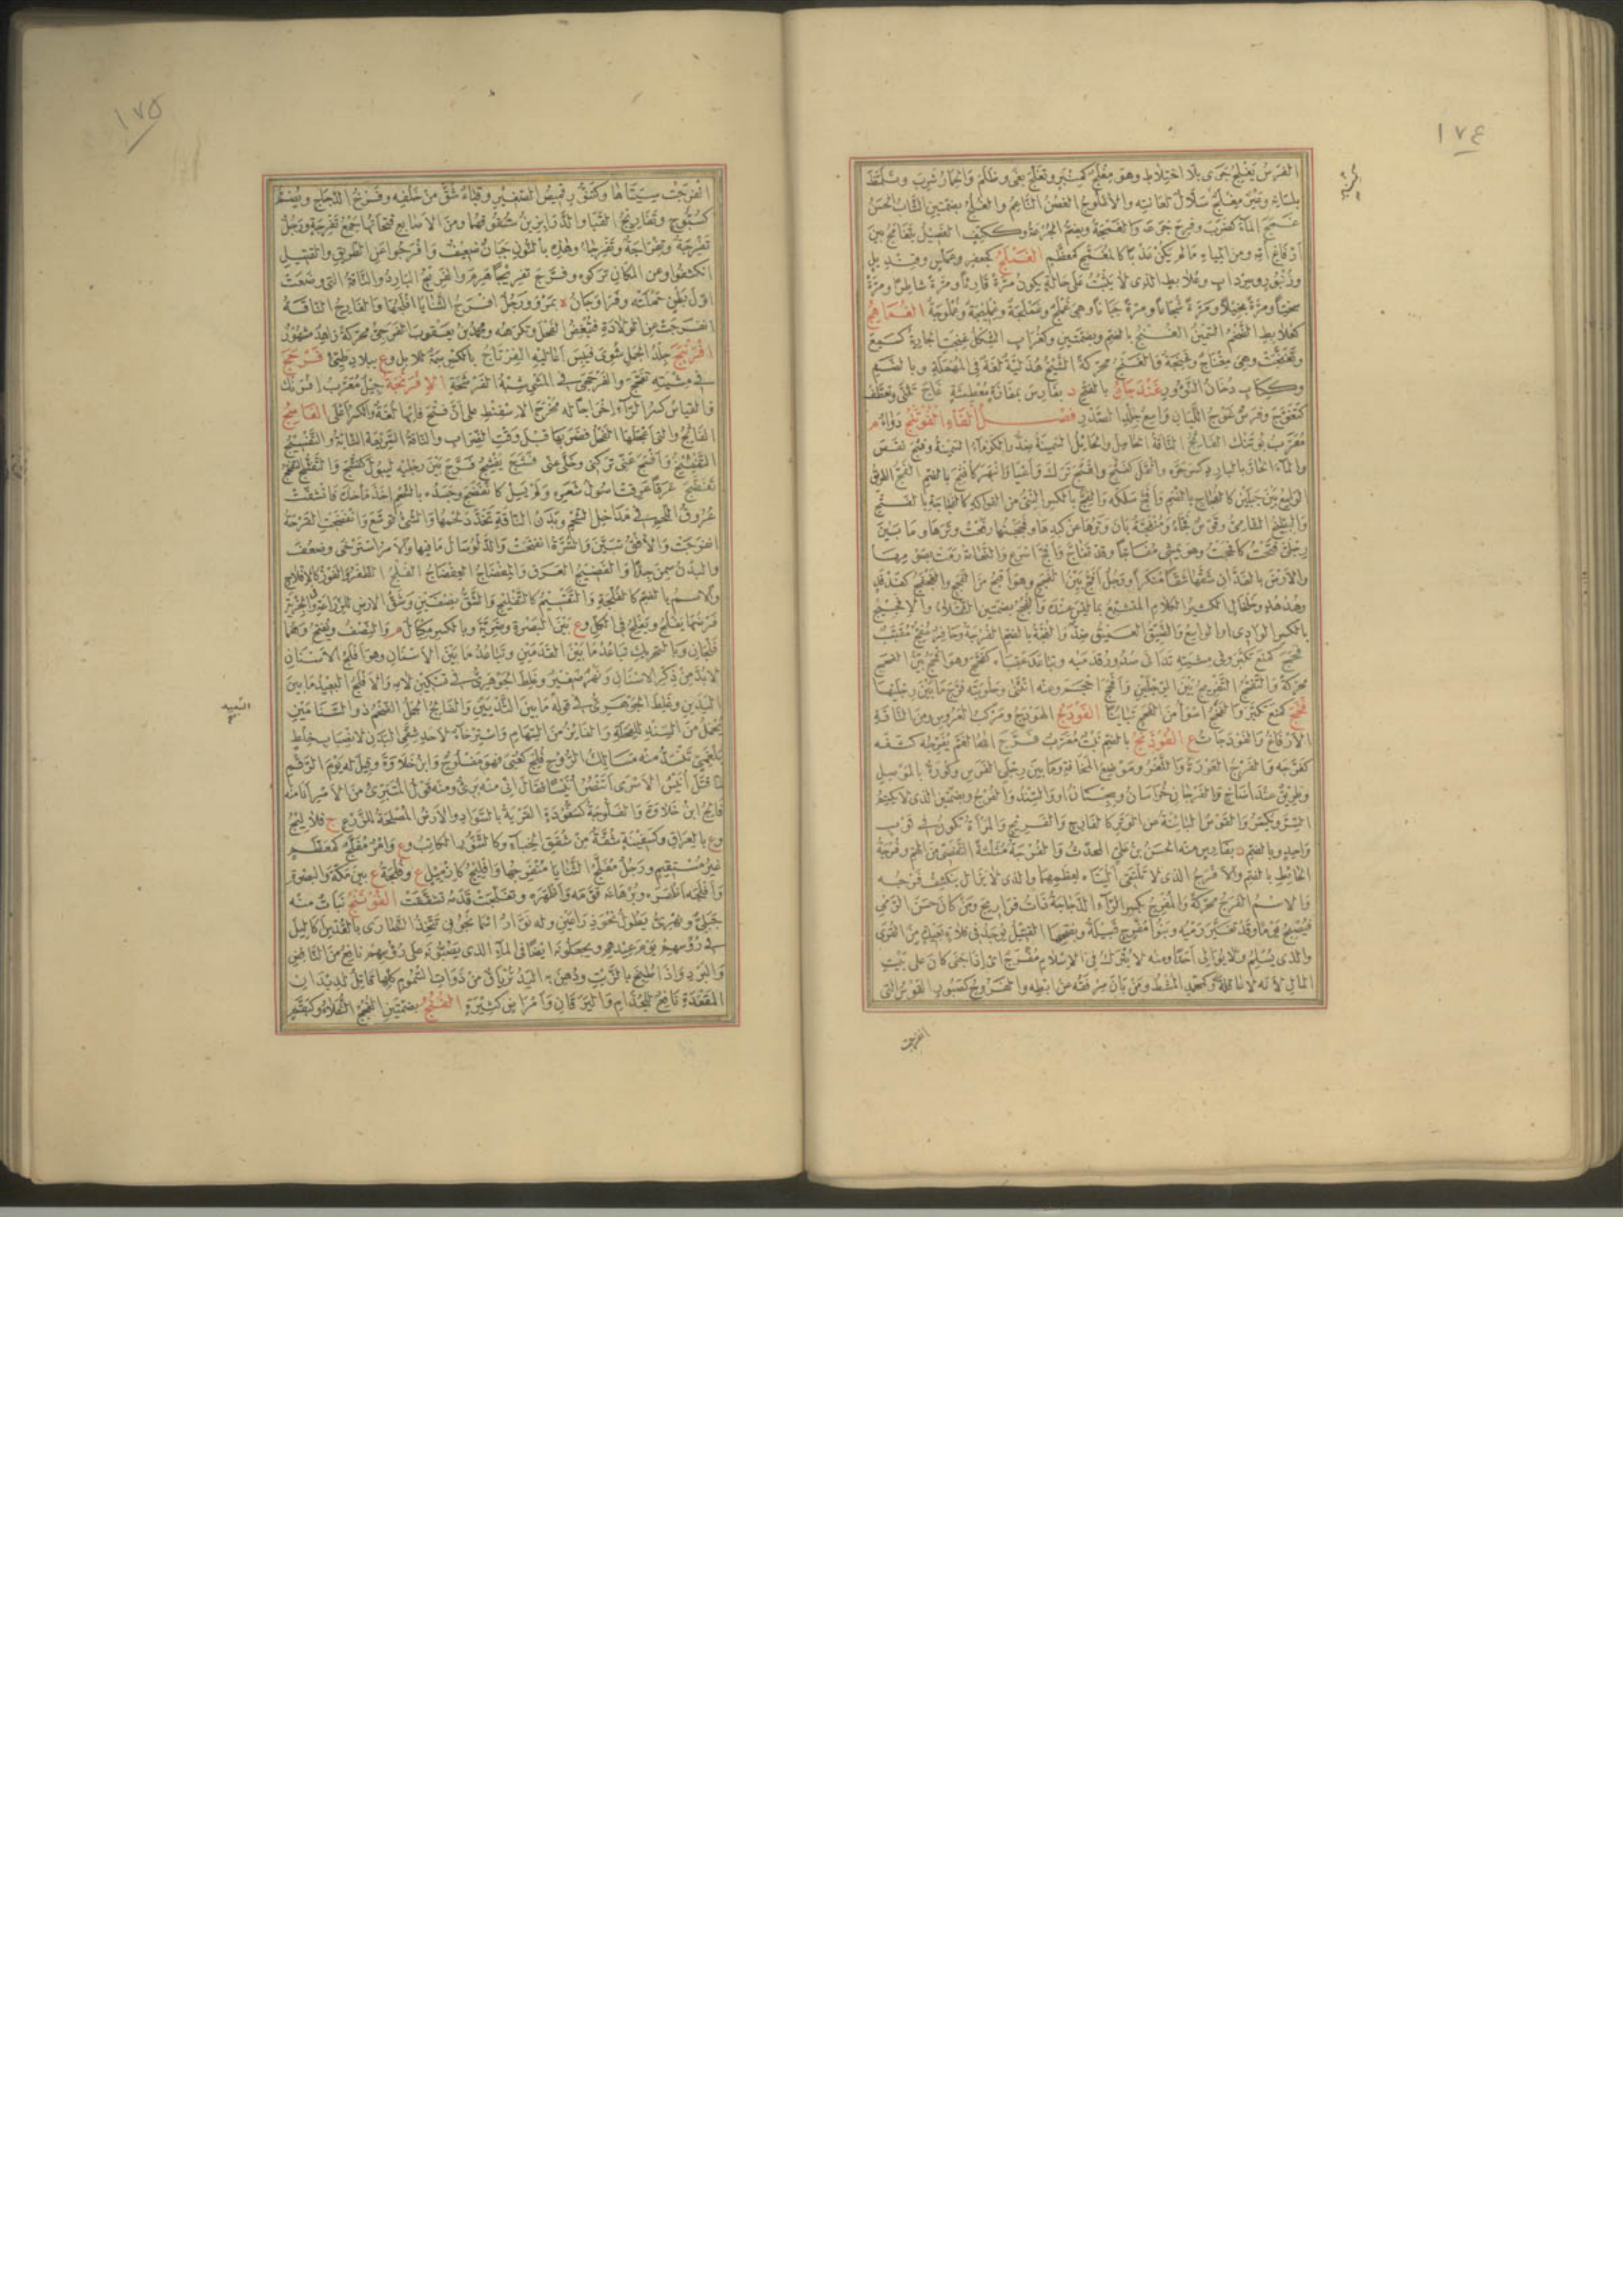 ١٧٤
الفرس يغلج جرى بلا اختلاط وهو مغلج كمنبر وتغلج بغى وظلم والحمار شرب وتلمظ
بلسانه وعير مغلج شلال لعانته والأغلوج الغصن الناعم والغلج بضمتين الشاب الحسن
غمج الماء كضرب وفرح جرعه والغمجة ويضم الجرعة وككتف الفصيل يتغامج بين
أرفاغ أمه ومن المياه ما لم يكن عذبا كالمغمج كمعظم الغملج كجعفر وعملس وقنديل
وزنبور وسرداب وعلابط الذى لا يثبت على حالة يكون مرة قارئا ومرة شاطرا ومرة
سخيا ومرة بخيلا ومرة شجاعا ومرة جبانا وهى غملج وغملجة وغمليجة وغملوجة الغماهج
كعلابط الضخم السمين الغنج بالضم وبضمتين وكغراب الشكل غنجت الجارية كسمع
وتغنجت وهى مغناج وغنجة والغنج محركة الشيخ هذلية لغة فى المهملة وبالضم
وككتاب دخان النؤور غندجان بالفتح د بفارس بمفازة معطشة غاج تثنى وتعطف
كتغوج وفرس غوج اللبان واسع جلد الصدر فصل الفاء الفوتنج دواء م
معرب بوتنك الفاثج الناقة الحامل والحائل السمينة ضد والكوماء السمينة وفثج نقص
والماء الحار بالبارد كسر حره وأثقل كفثج وافثج ترك وأعيا وانبهر كأفثج بالضم الفج الطريق
الواسع بين جبلين كالفجاج بالضم وأفج سلكه والفج بالكسر النى من الفواكه كالفجاجة بالفتح
والبطيخ الشامى وقوس فجاء ومنفجة بان وترها عن كبدها وفججتها رفعت وترها وما بين
رجلى فتحت كأفججت وهو يمشى مفاجا وقد تفاج وأفج أسرع والنعامة رمت بصومها
والأرض بالفدان شقها شقا منكرا ورجل أفج بين الفجج وهو أقبح من الفحج والفجفج كفدفد
وهدهد وخلخال الكثير الكلام المتشبع بما ليس عنده والفجج بضمتين الثقلاء والإفجيج
بالكسر الوادى أو الواسع والضيق العميق ضد والفجة بالضم الفرجة وحافر مفج مقبب
فحج كمنع تكبر وفى مشيته تدانى صدور قدميه وتباعد عقباه كفحج وهو أفحج بين الفحج
محركة والتفحج التفريج بين الرجلين وأفحج أحجم وعنه انثنى وحلوبته فرج ما بين رجليها
فخج كمنع تكبر والفخج أسوأ من الفحج تباينا الفودج الهودج ومركب العروس ومن الناقة
الأرفاغ والفودجات ع الفوذنج بالضم نبت معرب فرج الله الغم يفرجه كشفه
كفرجه والفرج العورة والثغر وموضع المخافة وما بين رجلى الفرس وكورة بالموصل
وطريق عند أضاخ والفرجان خراسان وسجستان أو السند والفرج وبضمتين الذى لا يكتم
السر ويكسر والقوس البائنة عن الوتر كالفارج والفريج والمرأة تكون فى ثوب
واحد وبالضم د بفارس منه الحسن بن على المحدث والفرجة مثلثة التفصى من الهم وفرجة
الحائط بالضم والأفرج الذى لا تلتقى أليتاه لعظمهما والذى لا يزال ينكشف فرجه
والاسم الفرج محركة والمفرج بكسر الراء الدجاجة ذات فراريج ومن كان حسن الرمى
فيصبح يوما وقد تغير رميه وبنو مفرج قبيلة وبفتحها القتيل يوجد فى فلاة بعيدة من القرى
والذى يسلم ولا يوالى أحدا ومنه لا يترك فى الإسلام مفرج أى إذا جنى كان على بيت
المال لأنه لا عاقلة له وكمحمد المشط ومن بان مرفقه عن إبطه والفروج كصبور القوس التى
انفرجت
١٧٥
انفرجت سيتاها وكتنور قميص الصغير وقباء شق من خلفه وفرخ الدجاج ويضم
كسبوح وتفاريج القباء والدرابزين شقوقهما ومن الأصابع فتحاتها جمع تفرجة ورجل
تفرجة وتفراجة وتفرجاء وهذه بالنون جبان ضعيف وأفرجوا عن الطريق والقتيل
انكشفوا وعن المكان تركوه وفرج تفريجا هرم والفريج البارد والناقة التى وضعت
أول بطن حملته وفراوجان ة بمرو ورجل أفرج الثنايا أفلجها والفارج الناقة
انفرجت عن الولادة فتبغض الفحل وتكرهه ومحمد بن يعقوب الفرجى محركة زاهد مشهور
افرنبج جلد الحمل شوى فيبس أعاليه الفرتاج بالكسر سمة للإبل وع ببلاد طيئ فرحج
فى مشيته تفحج والفرحجى فى المشى شبه الفرشحة الإفرنجة جيل معرب إفرنك
والقياس كسر الراء إخراجا له مخرج الإسفنط على أن فتح فائها لغة والكسر أعلى الفاسج
الفاثج والتى أعجلها الفحل فضربها قبل وقت الضراب والناقة السريعة الشابة والتفسيج
التفشيج وأفسج عنى تركنى وخلى عنى فشج يفشج فرج بين رجليه ليبول كفشج والتفشج التفحج
تفضج عرقا عرقت أصول شعره ولم يسل كانفضج وجسده بالشحم أخذ مأخذه فانشقت
عروق اللحم فى مداخل الشحم وبدن الناقة تخدد لحمها والشئ توسع وانفضجت القرحة
انفرجت والأفق تبين والسرة انفتحت والدلو سال ما فيها والأمر استرخى وضعف
والبدن سمن جدا والفضيج العرق والمفضاج العفضاج الفلج الظفر والفوز كالإفلاج
والاسم بالضم كالفلجة والتقسيم كالتفليج والشق نصفين وشق الأرض للزراعة والجزية
فرضها يفلج ويفلج فى الكل وع بين البصرة وضرية وبالكسر مكيال م والنصف ويفتح وهما
فلجان وبالتحريك تباعد ما بين القدمين وتباعد ما بين الأسنان وهو أفلج الأسنان
لا بد من ذكر الأسنان ونهر صغير وغلط الجوهرى فى تسكين لامه والأفلج البعيد ما بين
اليدين وغلط الجوهرى فى قوله ما بين الثديين والفالج الجمل الضخم ذو السنامين
يحمل من السند للفحلة والفائز من السهام واسترخاء لأحد شقى البدن لانصباب خلط
بلغمى تنسد منه مسالك الروح فلج كعنى فهو مفلوج وابن خلاوة وقيل له يوم الرقم
لما قتل أنيس الأسرى أتنصر أنيسا فقال إنى منه برئ ومنه قول المتبرئ من الأمر أنا منه
فالج ابن خلاوة والفلوجة كسفودة القرية بالسواد والأرض المصلحة للزرع ج فلاليج
وع بالعراق وكسفينة شقة من شقق الخباء وكالتنور الكاتب وع وأمر مفلج كمعظم
غير مستقيم ورجل مفلج الثنايا منفرجها وإفليج كإزميل ع وفلجة ع بين مكة والبصرة
وأفلجه أظفره وبرهانه قومه وأظهره وتفلجت قدمه تشققت الفوتنج نبات منه
جبلى ونهرى
فى رؤسهم يوم عيدهم ويجعلونه أيضا فى الماء الذى يصبونه على رؤسهم نافع من النافض
والبرد وإذا طبخ بالزيت ودهن به اليد ترياق من ذوات السموم كلها قاتل لديدان
المقعدة نافع للجذام واليرقان وأمراض كثيرة الفنج بضمتين الفجج الثقلاء وكبقم